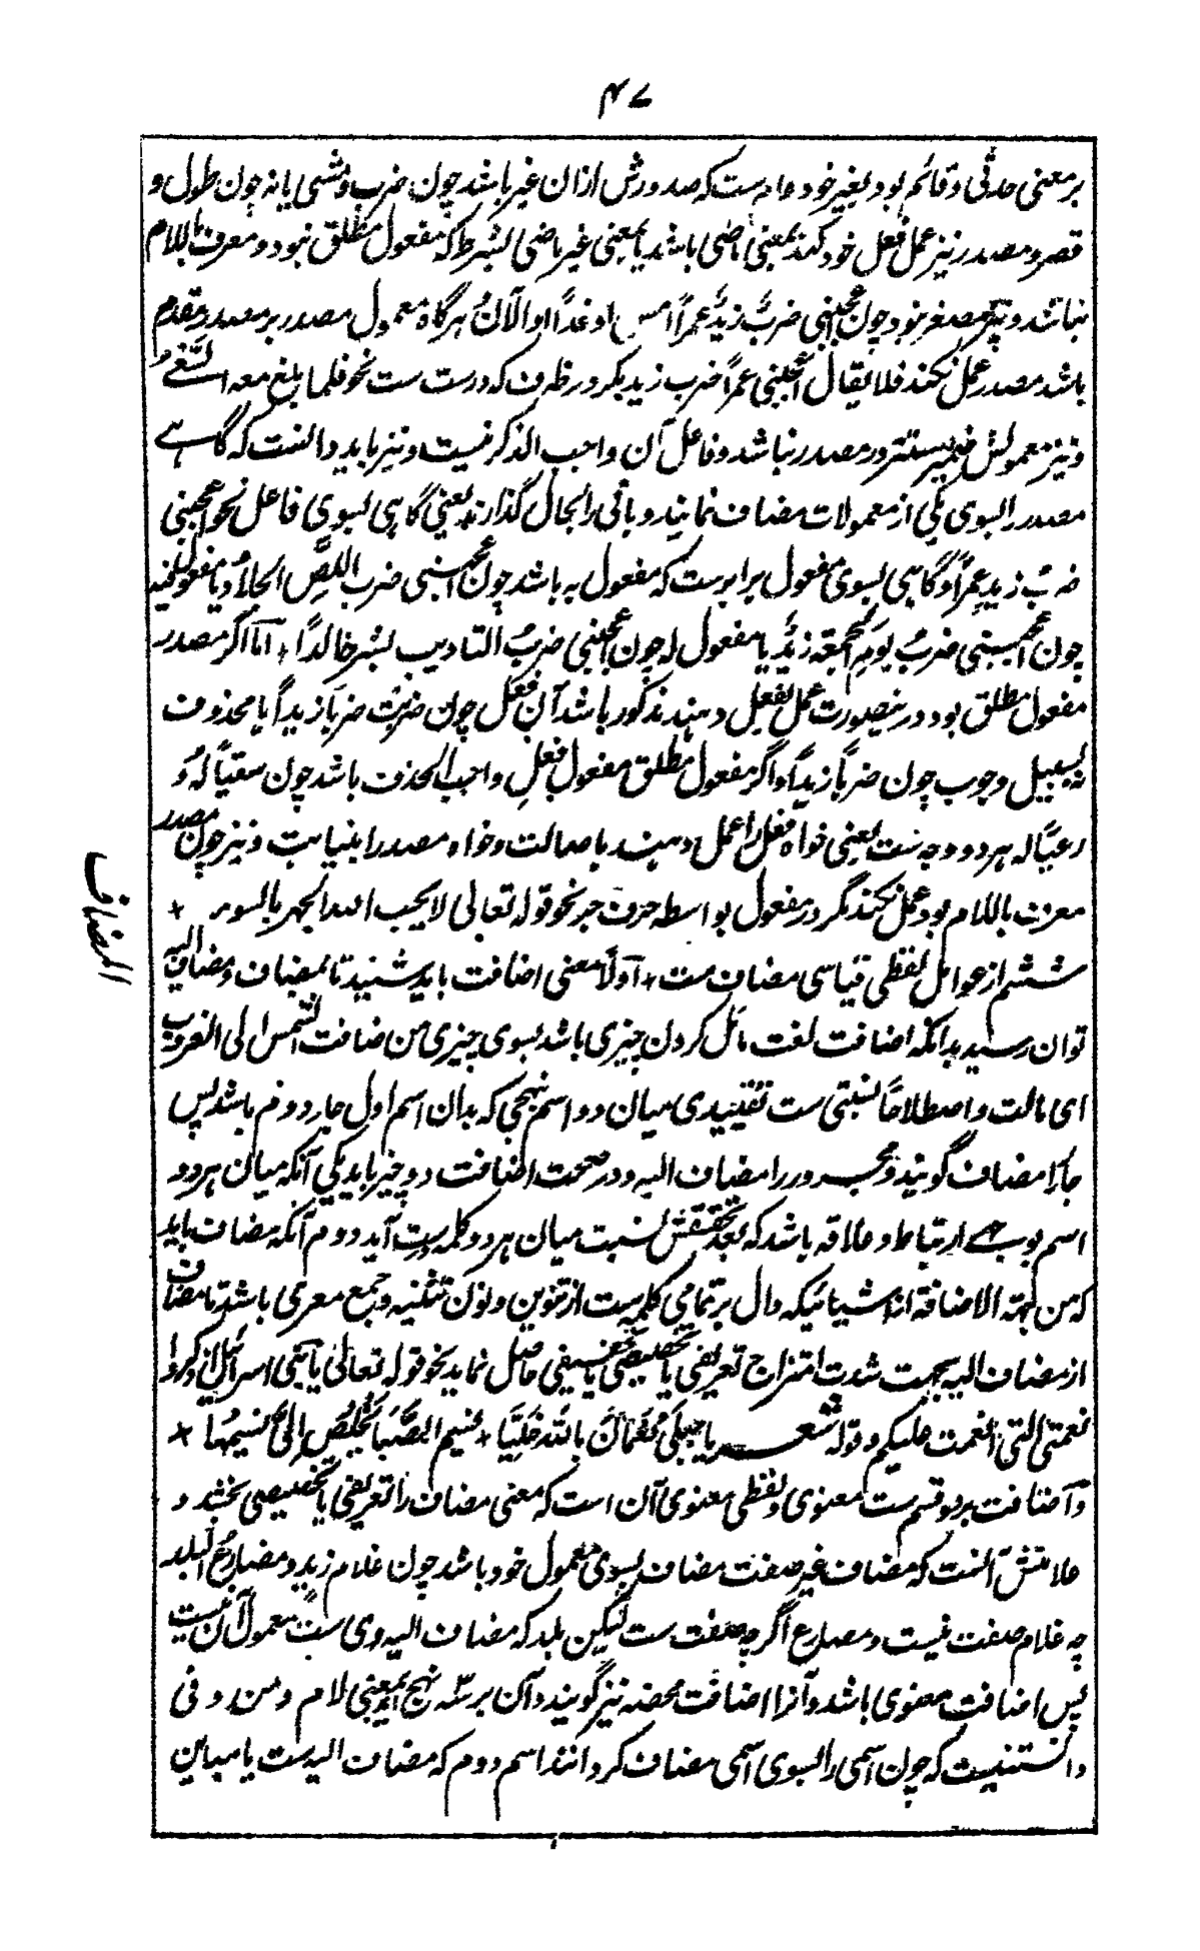 ۴۷
بر معنی حدثی و قائم بود بغیر خود عام ست که صدورش ازان غیر باشد چون ضرب و مشی یا نه چون طول و
قصر و مصدر نیز عمل فعل خود کند بمعنی ماضی باشد یا بمعنی غیر ماضی بشرط که مفعول مطلق نبود و معرف باللام
نباشد و نیز مصغر نبود چون اعجبنی ضربٌ زیدٌ عمراً امس او غداً او الآنَ هرگاه معمول مصدر بر مصدر مقدم
باشد مصدر عمل نکند فلا یقال اعجبنی عمراً ضرب زید بکر در ظرف که درست ست نحو فلما بلغ معه السَّعْیَ
و نیز معمولش ضمیر مستتر در مصدر نباشد و فاعل آن واجب الذکر نیست و نیز باید دانست که گاهے
مصدر را بسوی یکی از معمولات مضاف نمایند و باقی را بحال گذارند یعنی گاهی بسوی فاعل نحو اعجبنی
ضربُ زیدٍ عمراً و گاهی بسوی مفعول برابرست که مفعول به باشد چون اعجبنی ضرب اللصِّ الجلادُ یا مفعول فیه
چون اعجبنی ضربُ یومِ الجمعة زیدٌ یا مفعول له چون اعجبنی ضربُ التادیب بشر خالداً، امّا اگر مصدر
مفعول مطلق بود درینصورت عمل بفعل دهند مذکور باشد آن فعل چون ضربتُ ضرباً زیداً یا محذوف
نه بسبیل وجوب چون ضرباً زیداً و اگر مفعول مطلق مفعول فعلِ واجب الحذف باشد چون سقیاً لهُ وَ
رعیاً له هر دو وجه ست یعنی خواه فعل را عمل دهند باصالت و خواه مصدر را بنیابت و نیز چون مصدر
معرف باللام بود عمل نکند مگر در مفعول بواسطه حرف جر نحو قوله تعالی لا یحب الله الجهر بالسوء +
المضاف
ششم از عوامل لفظی قیاسی مضاف ست، اولاً معنی اضافت باید شنید تا بمضاف و مضاف الیه
توان رسید بدانکه اضافت لغت مائل کردن چیزی باشد بسوی چیزی من ضافت الشمس الی الغروب
ای مالت و اصطلاحاً نسبتی ست تقییدی میان دو اسم بنهجی که بدان اسم اول جار دوم باشد پس
جار را مضاف گویند و مجرور را مضاف الیه و در صحت اضافت دو چیز باید یکی آنکه میان هر دو
اسم بوجهے ارتباط و علاقه باشد که بعد تحققش نسبت میان هر دو کلمه درست آید دوم آنکه مضاف باید
که من جهته الاضافة از اشیائیکه دال بر تمامی کلمه ست از تنوین و نون تثنیه و جمع معری باشد تا مضاف
از مضاف الیه بجهت شدت امتزاج تعریفی یا تخصیصی یا تخفیفی حاصل نماید نحو قوله تعالی یا بنی اسرائیل اذکروا
نعمتی التی انعمت علیکم و قوله شعر یا جبلَی نعمانَ باللّه خلّیا، نسیم الصَّبا یخلُص الیَّ نسیمُها +
و اضافت بر دو قسم ست معنوی و لفظی معنوی آن است که معنی مضاف را تعریفی یا تخصیصی بخشد و
علامتش آنست که مضاف غیر صفت مضاف بسوی معمول خود باشد چون غلام زید و مصارع البلد
چه غلام صفت نیست و مصارع اگرچه صفت ست لیکن بلد که مضاف الیه وی ست معمول آن نیست
پس اضافت معنوی باشد و آنرا اضافت محضه نیز گویند و آن بر سه نهج آید بمعنی لام و من و فی
دانستنیست که چون اسمی را بسوی اسمی مضاف کردانند اسم دوم که مضاف الیه ست یا مباین